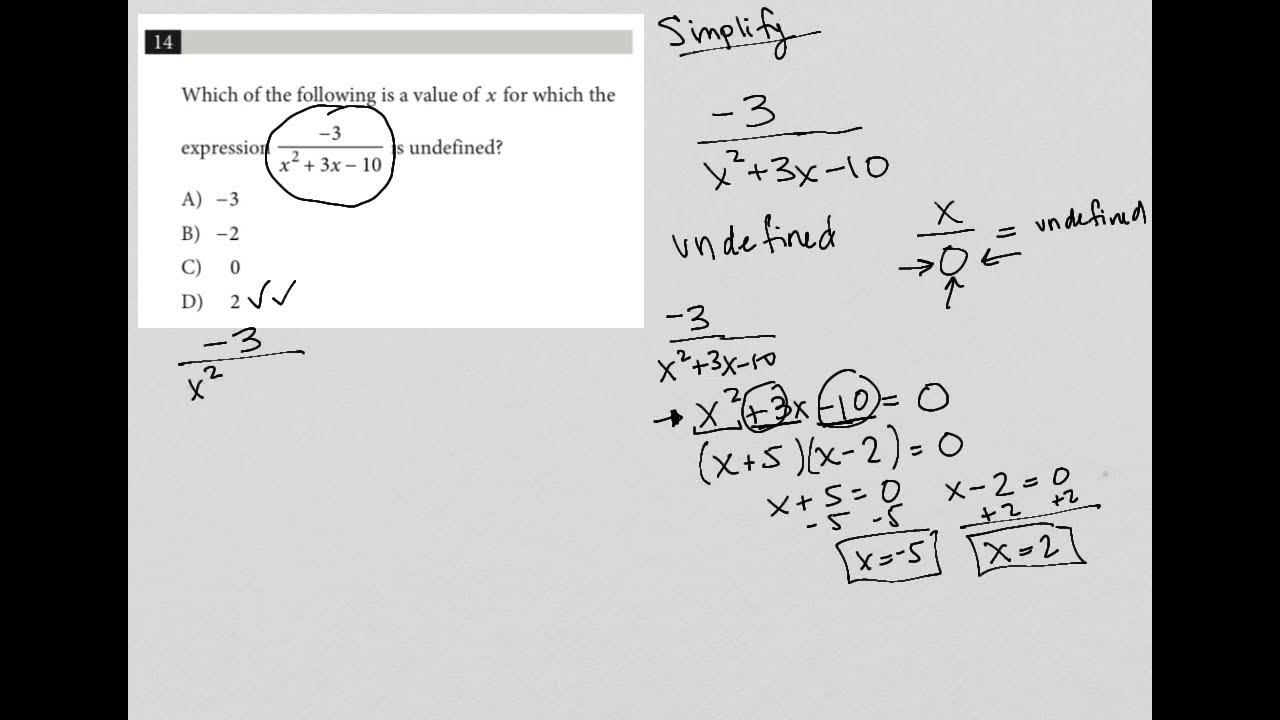 14
Which of the following is a value of x for which the
expression -3/(x² + 3x - 10) is undefined?
A) -3
B) -2
C) 0
D) 2 ✓✓
-3
x²
Simplify
-3
x²+3x-10
undefined
x
→ 0 ← = undefined
↑
-3
x²+3x-10
→ x²+3x-10 = 0
(x+5)(x-2)=0
x+5=0 x-2=0
-5 -5 +2 +2
x=-5 x=2